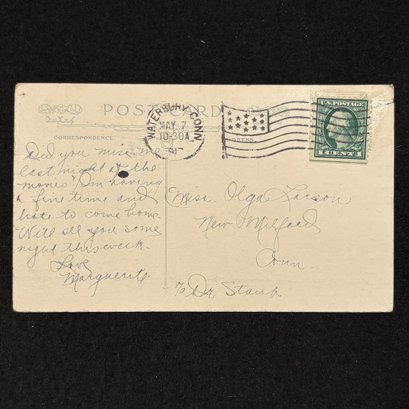 POST CARD
CORRESPONDENCE
WATERBURY, CONN
MAY 7
10-30A
U.S. POSTAGE
1 CENT 1
Did you miss me
last night at the
movies. I'm having
a fine time and
hate to come home.
Will see you some
night this week.
Love
Marguerite
Miss. Olga Larson
New Milford
Conn
c/o Dr Staub